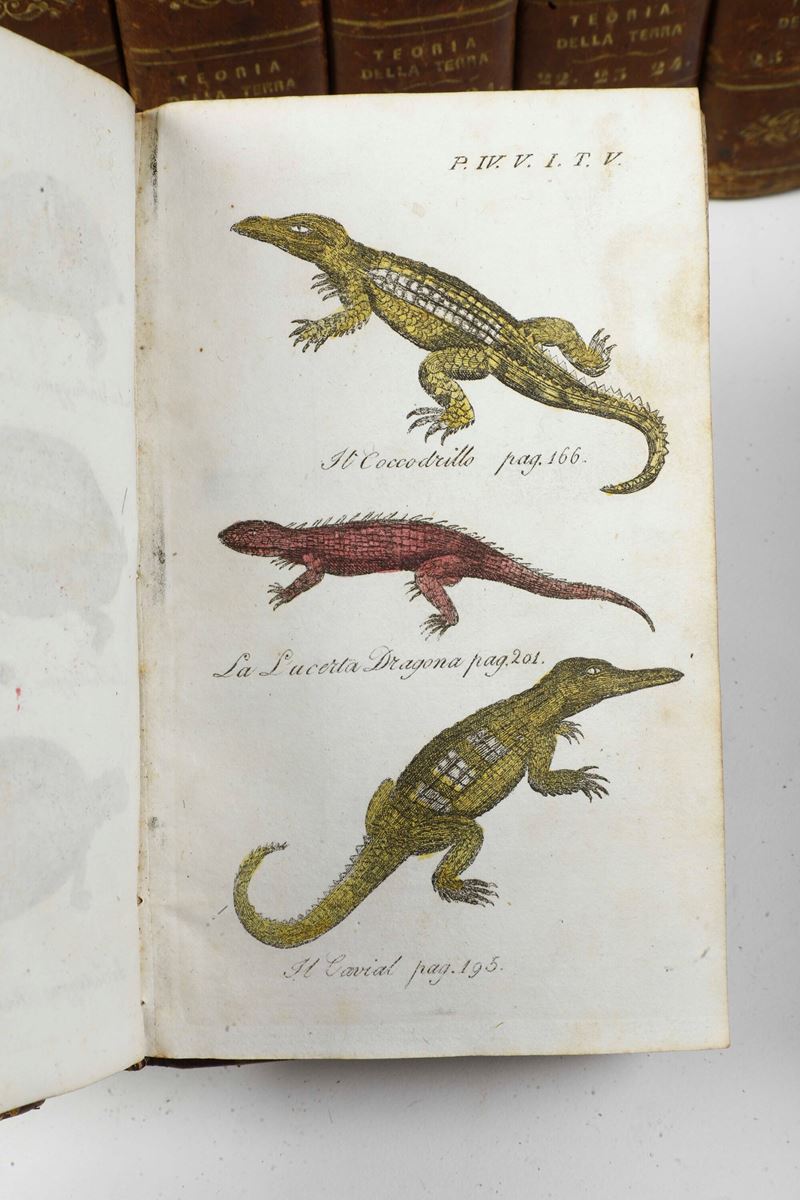 TEORIA
DELLA TERRA
TEORIA
DELLA TERRA
TEORIA
DELLA TERRA
22. 23. 24.
P. IV. V. I. T. V.
Il Coccodrillo pag. 166.
La Lucerta Dragona pag. 201.
Il Gavial pag. 195.